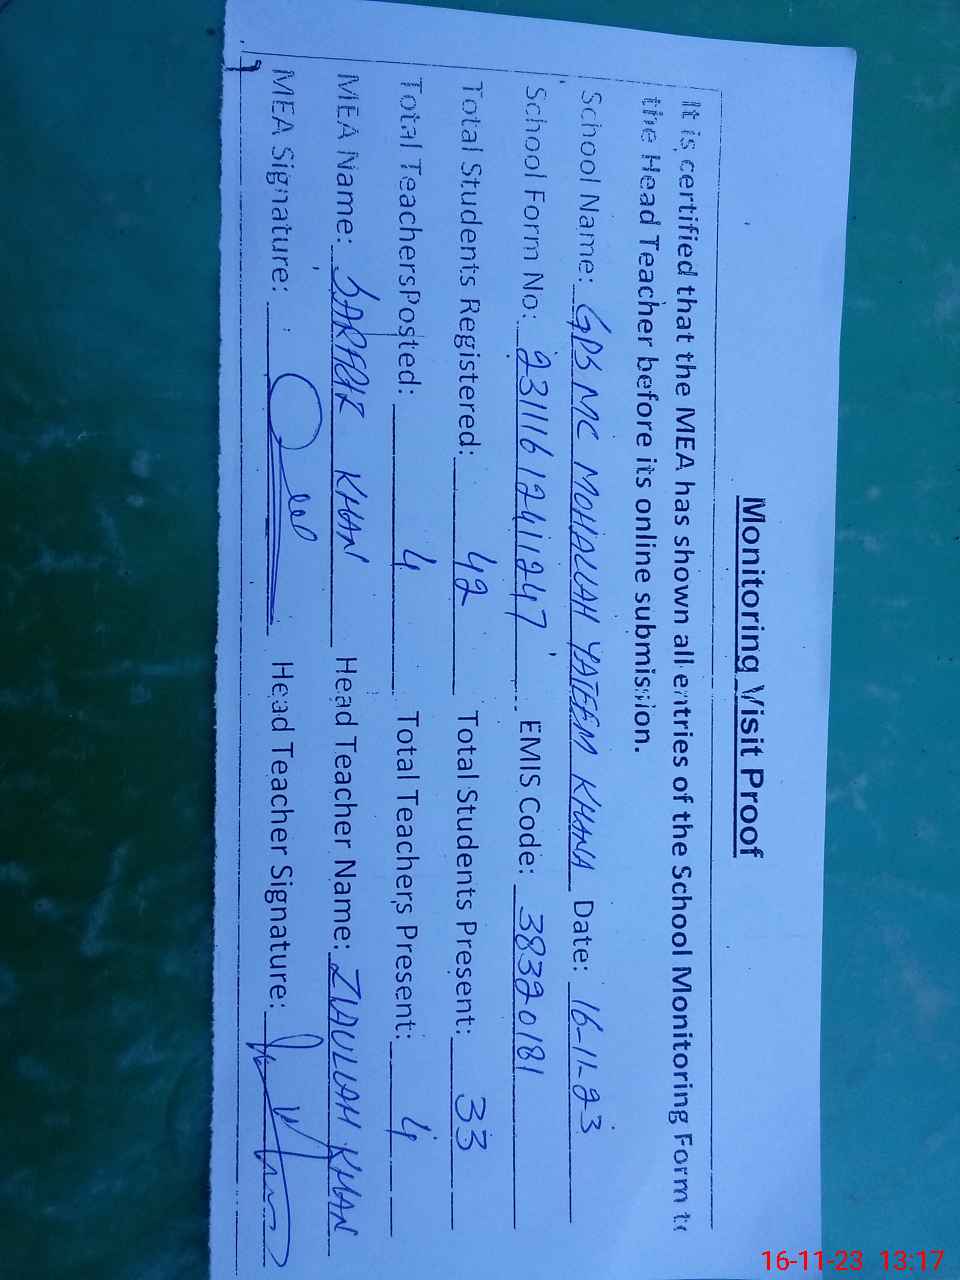 Monitoring Visit Proof
It is certified that the MEA has shown all entries of the School Monitoring Form to
the Head Teacher before its online submission.
School Name: GPS MC MOHALLAH YATEEM KHANA Date: 16-11-23
School Form No: 23111612411247 EMIS Code: 38320181
Total Students Registered: 42 Total Students Present: 33
Total TeachersPosted: 4 Total Teachers Present: 4
MEA Name: KHAN Head Teacher Name: ZIAULLAH KHAN
MEA Signature: Head Teacher Signature:
16-11-23 13:17